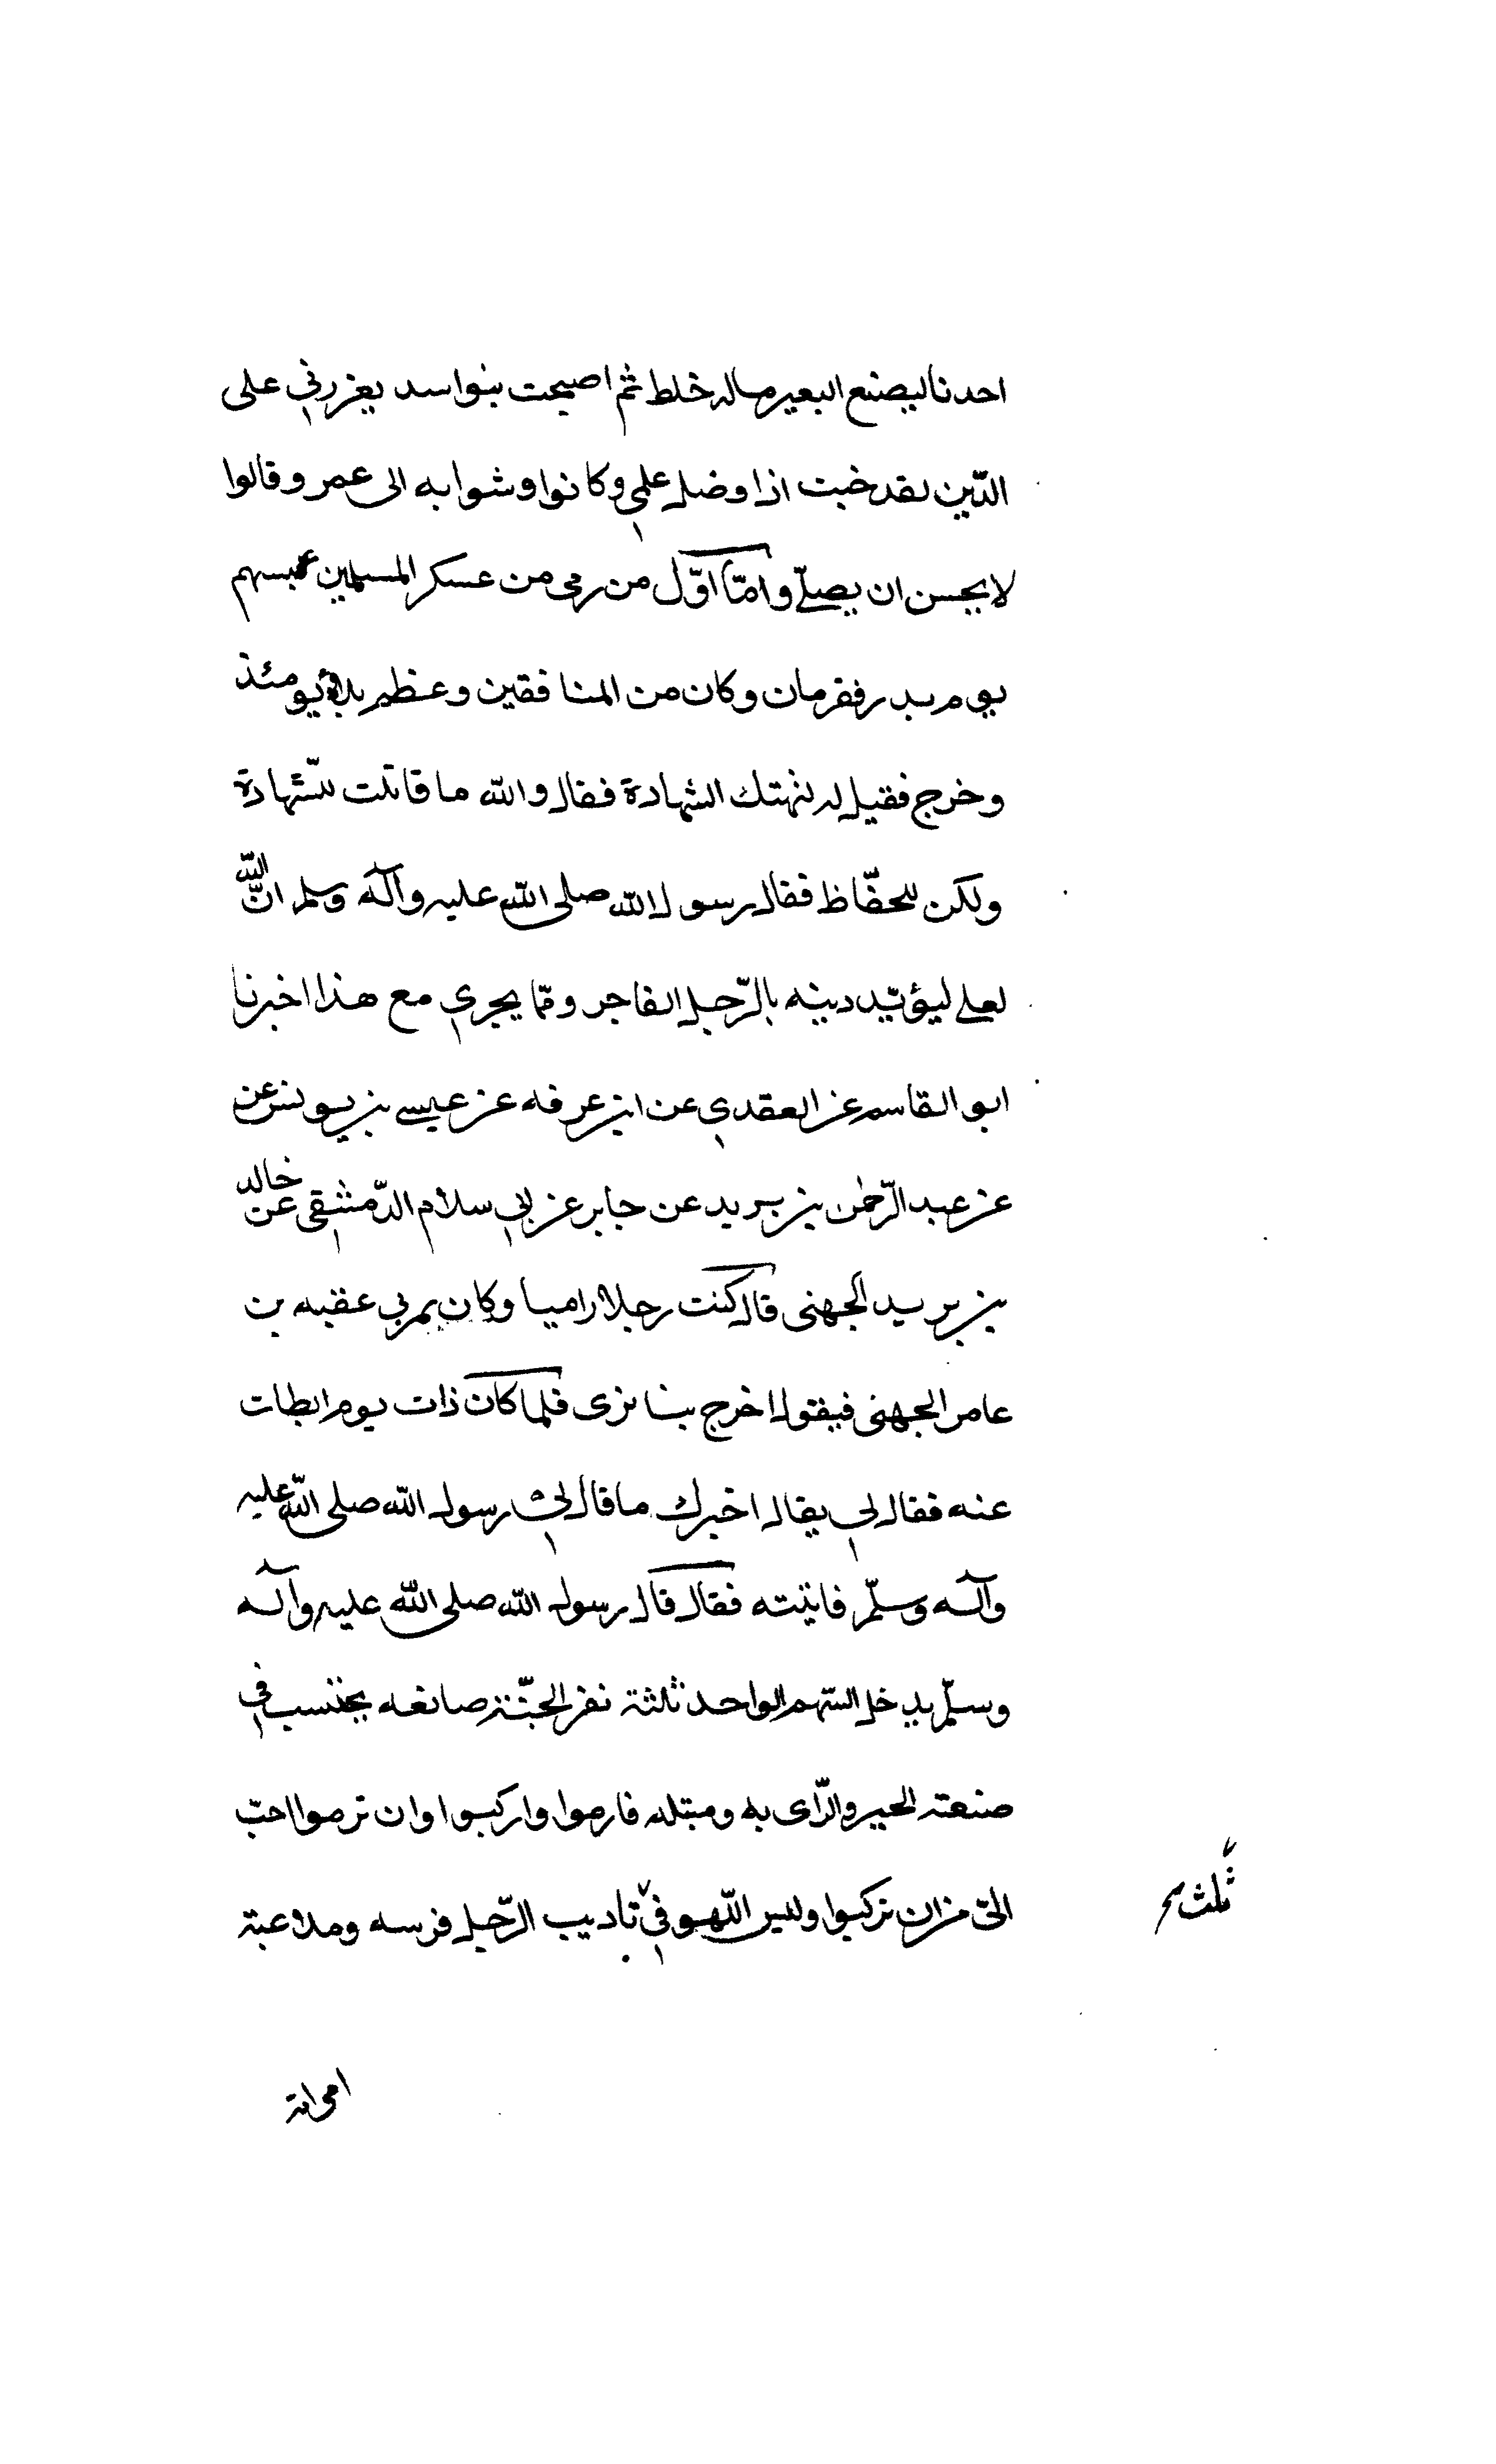 احدنا ليصنع البعير ماله خلط ثم اصبحت بنوا سد يعزرني على
الدّين لقد خبت اذا وضل علمي وكانوا وشوا به الى عمر وقالوا
لا يحسن ان يصلّي وامّا اوّل من رمى من عسكر المسلمين
يوم بدر فقرمان وكان من المنافقين وعظم بلاؤه يومئذ
وخرج فقيل له لنهتك الشهادة فقال والله ما قاتلت للشّهادة
ولكن للحفّاظ فقال رسول الله صلى الله عليه وآله وسلم انّ الله
لعلى ليؤيّد دينه بالرّجل الفاجر وممّا يجري مع هذا اخبرنا
ابو القاسم عن العقدي عن ابن عرفه عن عيسى بن يونس عن
عن عبد الرّحمن بن يريد عن جابر عن ابي سلام الدّمشقي عن خالد
بن يريد الجهني قال كنت رجلا راميا وكان يمر بي عقبه بن
عامر الجهني فيقول اخرج بنا نرى فلما كان ذات يوم ابطات
عنه فقال لي يقال اخبرك ما قال لي رسول الله صلى الله عليه
وآله وسلّم فاتيته فقال قال رسول الله صلى الله عليه وآله
وسلّم يدخل السّهم الواحد ثالثة نفر الجنّة صانعه يحتسب في
صنعته الخير والرّاى به ومنبله فارموا واركبوا وان ترموا احبّ
الىّ من ان تركبوا وليس اللّهو في تاديب الرّجل فرسه وملاعبة
ثلث
امراته